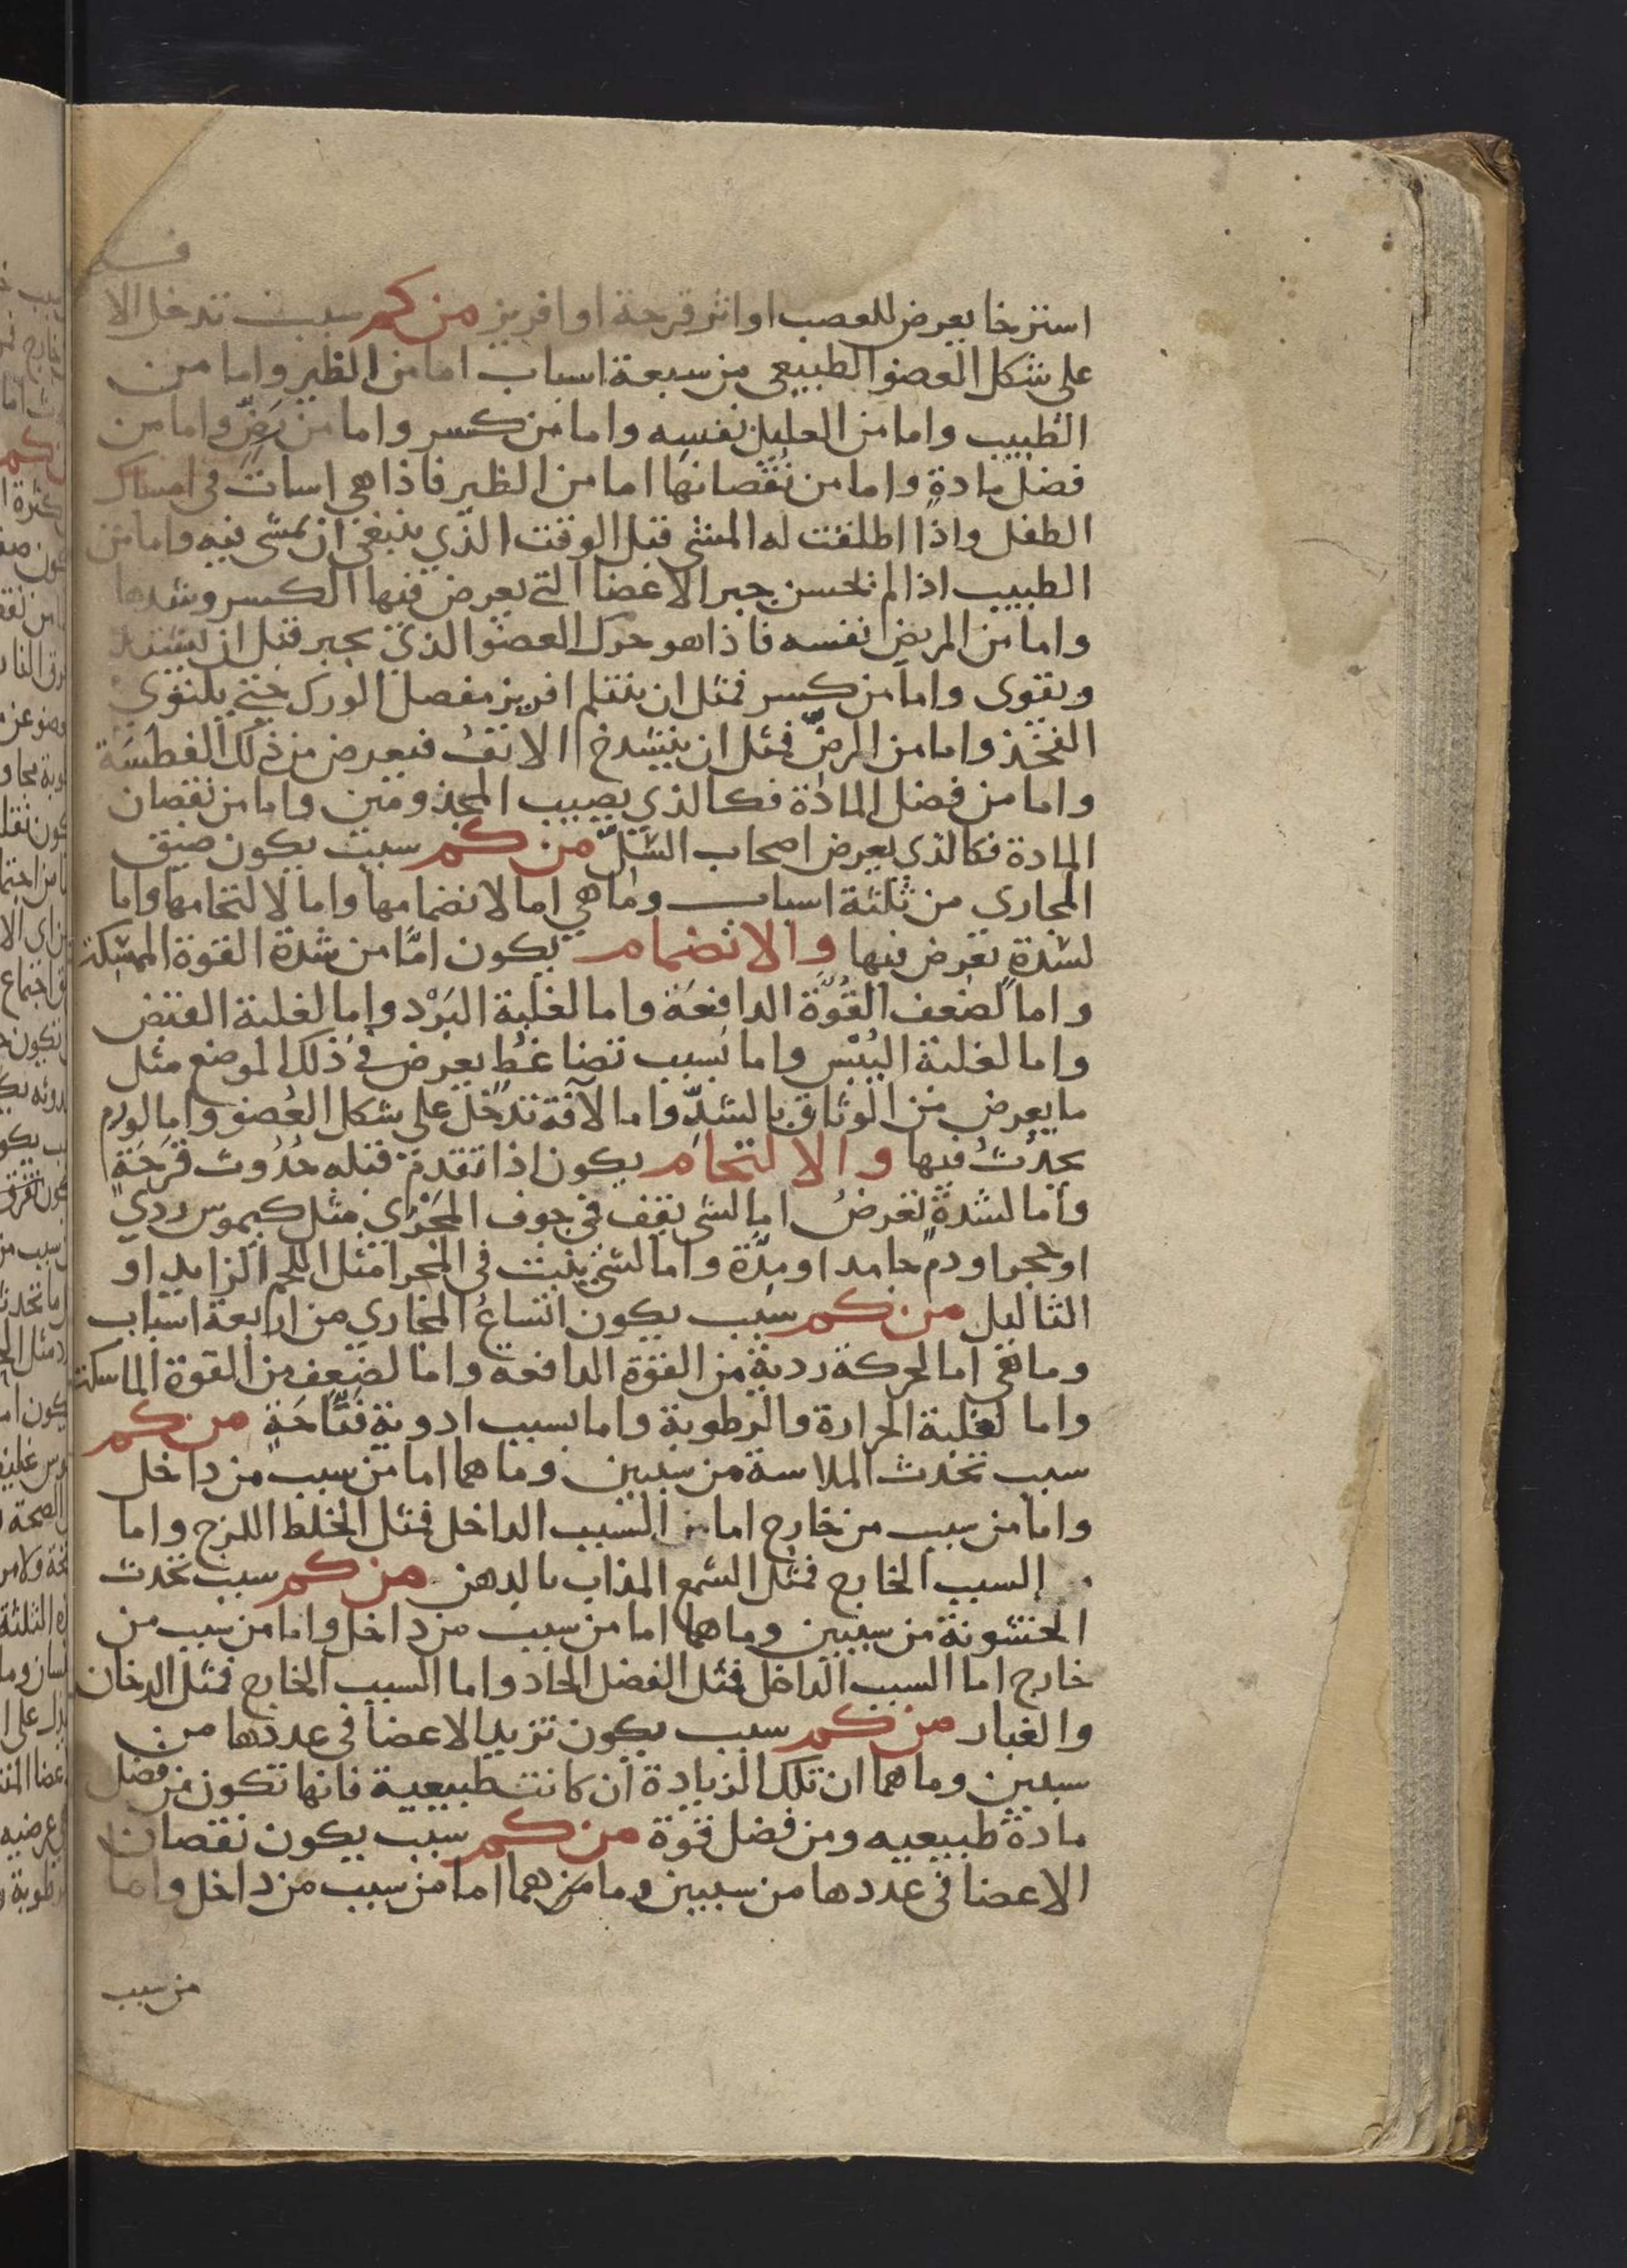 استرخا يعرض للعصب او اثر قرحة او افريز من كم سبب تدخل الا
على شكل العضو الطبيعي من سبعة اسباب اما من الظير واما من
الطبيب واما من العليل نفسه واما من كسر واما من رَضٍّ واما من
فضل مادةٍ واما من نُقصانها اما من الظير فاذا هي اسات في امساك
الطفل واذا اطلقت له المشى قبل الوقت الذي ينبغي ان يمشى فيه واما من
الطبيب اذا لم يحسن جبر الاعضا التي يعرض فيها الكسر وشدها
واما من المريض نفسه فاذا هو حرك العضو الذي يجبر قبل ان يشتد
ويقوى واما من كسر فمثل ان ينثلم افريز مفصل الورك حتى يلتوي
الفخذ واما من الرضّ فمثل ان ينشدخ الانفُ فيعرض من ذلك الفطسَة
واما من فضل المادة فكالذي يصيب المجذومين واما من نقصان
المادة فكالذي يعرض اصحاب السِّلّ من كم سبب يكون ضيق
المجاري من ثلثة اسباب وما هي اما لانضمامها واما لالتحامها واما
لسُدةٍ تعرض فيها والانضمام يكون امَّا من شدة القوة الممسكة
واما لضعف القُوّة الدافعَة واما لغلبة البَرْد واما لغلبة القبض
واما لغلبة اليُبْس واما بسبب تضاغطٍ يعرض في ذلك الموضع مثل
ما يعرض من الوثاق بالشدّ واما لآفة تدخل على شكل العُضو واما لورم
يحدُثُ فيها والالتحام يكون اذا تقدم قبله حُدُوث قرحَةٍ
واما لسُدةٍ تعرضُ اما لشى يقف في جوف المجْراي مثل كيموس ردي
او حجر او دم جامد او مِدَّة واما لشي ينبت في المجرا مثل اللحم الزايد او
الثاليل من كم سبب يكون اتساعُ المجاري من اربعة اسباب
وما هي اما لحركة ردية من القوة الدافعه واما لضعف من القوة الماسكة
واما لغلبة الحرارة والرطوبة واما بسبب ادوية فتّاحَةٍ من كم
سبب تحدث الملاسة من سببين وما هما اما من سبب من داخل
واما من سبب من خارج اما من السبب الداخل فمثل الخلط اللزج واما
السبب الخارج فمثل الشمع المذاب بالدهن من كم سبب تحدث
الخشونة من سببين وما هما اما من سبب من داخل واما من سبب من
خارج اما السبب الداخل فمثل الفضل الحاد واما السبب الخارج فمثل الدخان
والغبار من كم سبب يكون تزيد الاعضا في عددها من
سببين وما هما ان تلك الزيادة ان كانت طبيعية فانها تكون من فضل
مادة طبيعيه ومن فضل قوة من كم سبب يكون نقصان
الاعضا في عددها من سببين وما هما اما من سبب من داخل واما
من سبب